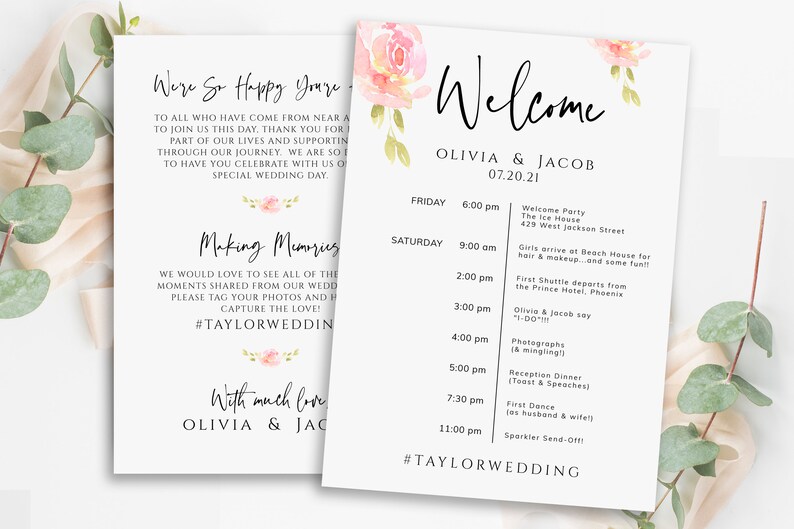 We're So Happy You're
TO ALL WHO HAVE COME FROM NEAR
TO JOIN US THIS DAY, THANK YOU FOR
PART OF OUR LIVES AND SUPPORTING
THROUGH OUR JOURNEY. WE ARE SO
TO HAVE YOU CELEBRATE WITH US
SPECIAL WEDDING DAY.
Making Memories
WE WOULD LOVE TO SEE ALL OF THE
MOMENTS SHARED FROM OUR
PLEASE TAG YOUR PHOTOS AND
CAPTURE THE LOVE!
#TAYLORWEDDING
With much love,
OLIVIA &
Welcome
OLIVIA & JACOB
07.20.21
FRIDAY 6:00 pm Welcome Party
The Ice House
429 West Jackson Street
SATURDAY 9:00 am Girls arrive at Beach House for
hair & makeup...and some fun!!
2:00 pm First Shuttle departs from
the Prince Hotel, Phoenix
3:00 pm Olivia & Jacob say
"I-DO"!!!
4:00 pm Photographs
(& mingling!)
5:00 pm Reception Dinner
(Toast & Speaches)
7:30 pm First Dance
(as husband & wife!)
11:00 pm Sparkler Send-Off!
#TAYLORWEDDING